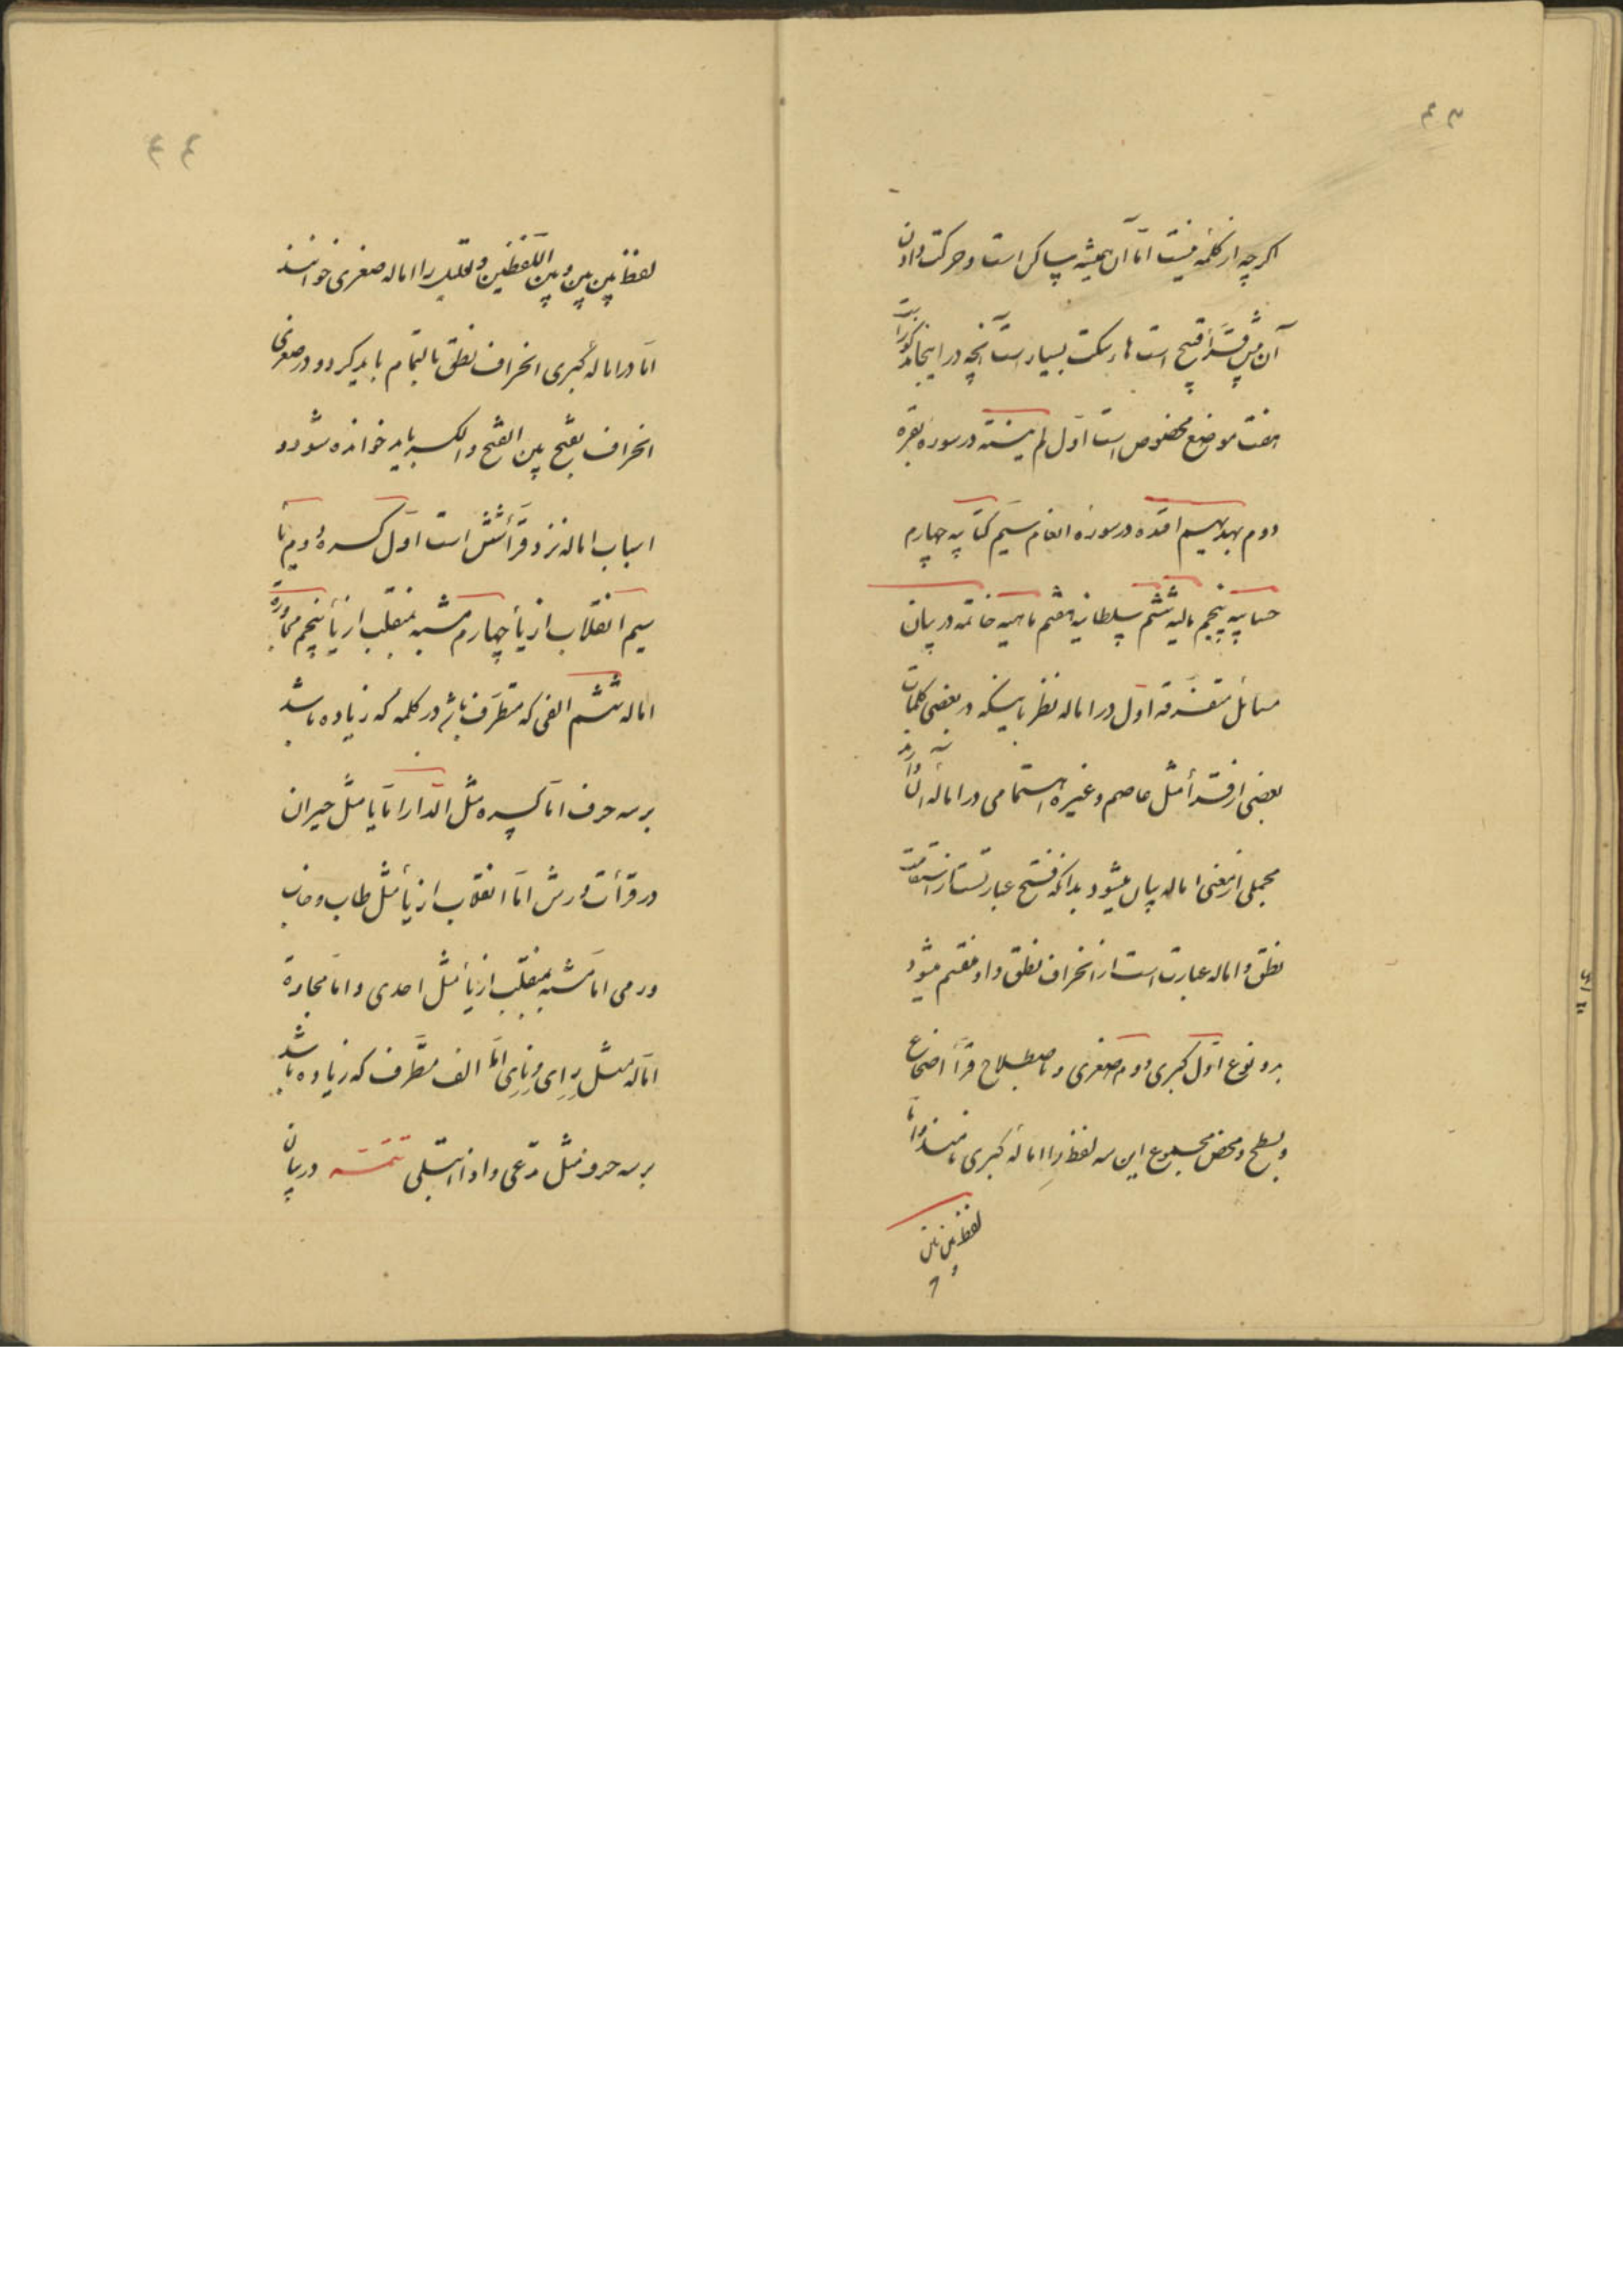 ۴۳
اکرچه از کلمه نیست امّا آن همیشه ساکن است و حرکت دادن
آن پیش قرّأ قبیح است هاء سکت بسیار است آنچه در اینجا مذکور است
هفت موضع مخصوص است اوّل لم یتسنّه در سوره بقره
دوم بهدیهم اقتده در سوره انعام سیّم کتابیه چهارم
حسابیه پنجم مالیه ششم سلطانیه هفتم ماهیه خاتمه در بیان
مسائل متفرّقه اوّل در اماله نظر باینکه در بعضی کلمات
بعضی از قرّأ مثل عاصم و غیره اهتمامی در اماله آن دارند
مجملی از معنی اماله بیان میشود بدانکه فتح عبارتست از استقامت
نطق و اماله عبارت است از انحراف نطق و او منقسم میشود
بدو نوع اوّل کبری دوم صغری و باصطلاح قرّأ اضجاع
و بطح و محض مجموع این سه لفظ را اماله کبری نامند و امّا
لفظ بین بین
۴۴
لفظ بین بین و بین اللّفظین و تقلیل را اماله صغری خوانند
امّا در اماله کبری انحراف نطق بالتمام باید کرد و در صغری
انحراف بفتح بین الفتح و الکسر باید خوانده شود و
اسباب اماله نزد قرّأ شش است اوّل کسره دویم یا
سیم انقلاب از یأ چهارم مشبه بمنقلب از یأ پنجم مجاورة
اماله ششم الفی که متطرّف باشد در کلمه که زیاده باشد
بر سه حرف امّا کسره مثل الدّار امّا یا مثل حیران
در قرأت ورش امّا انقلاب از یأ مثل طاب و خاب
و رمی امّا مشبه بمنقلب از یأ مثل احدی و امّا مجاورة
اماله مثل رِای و نِاِی امّا الف متطرّف که زیاده باشد
بر سه حرف مثل تدعی و اذا تتلی تتمّه در بیان